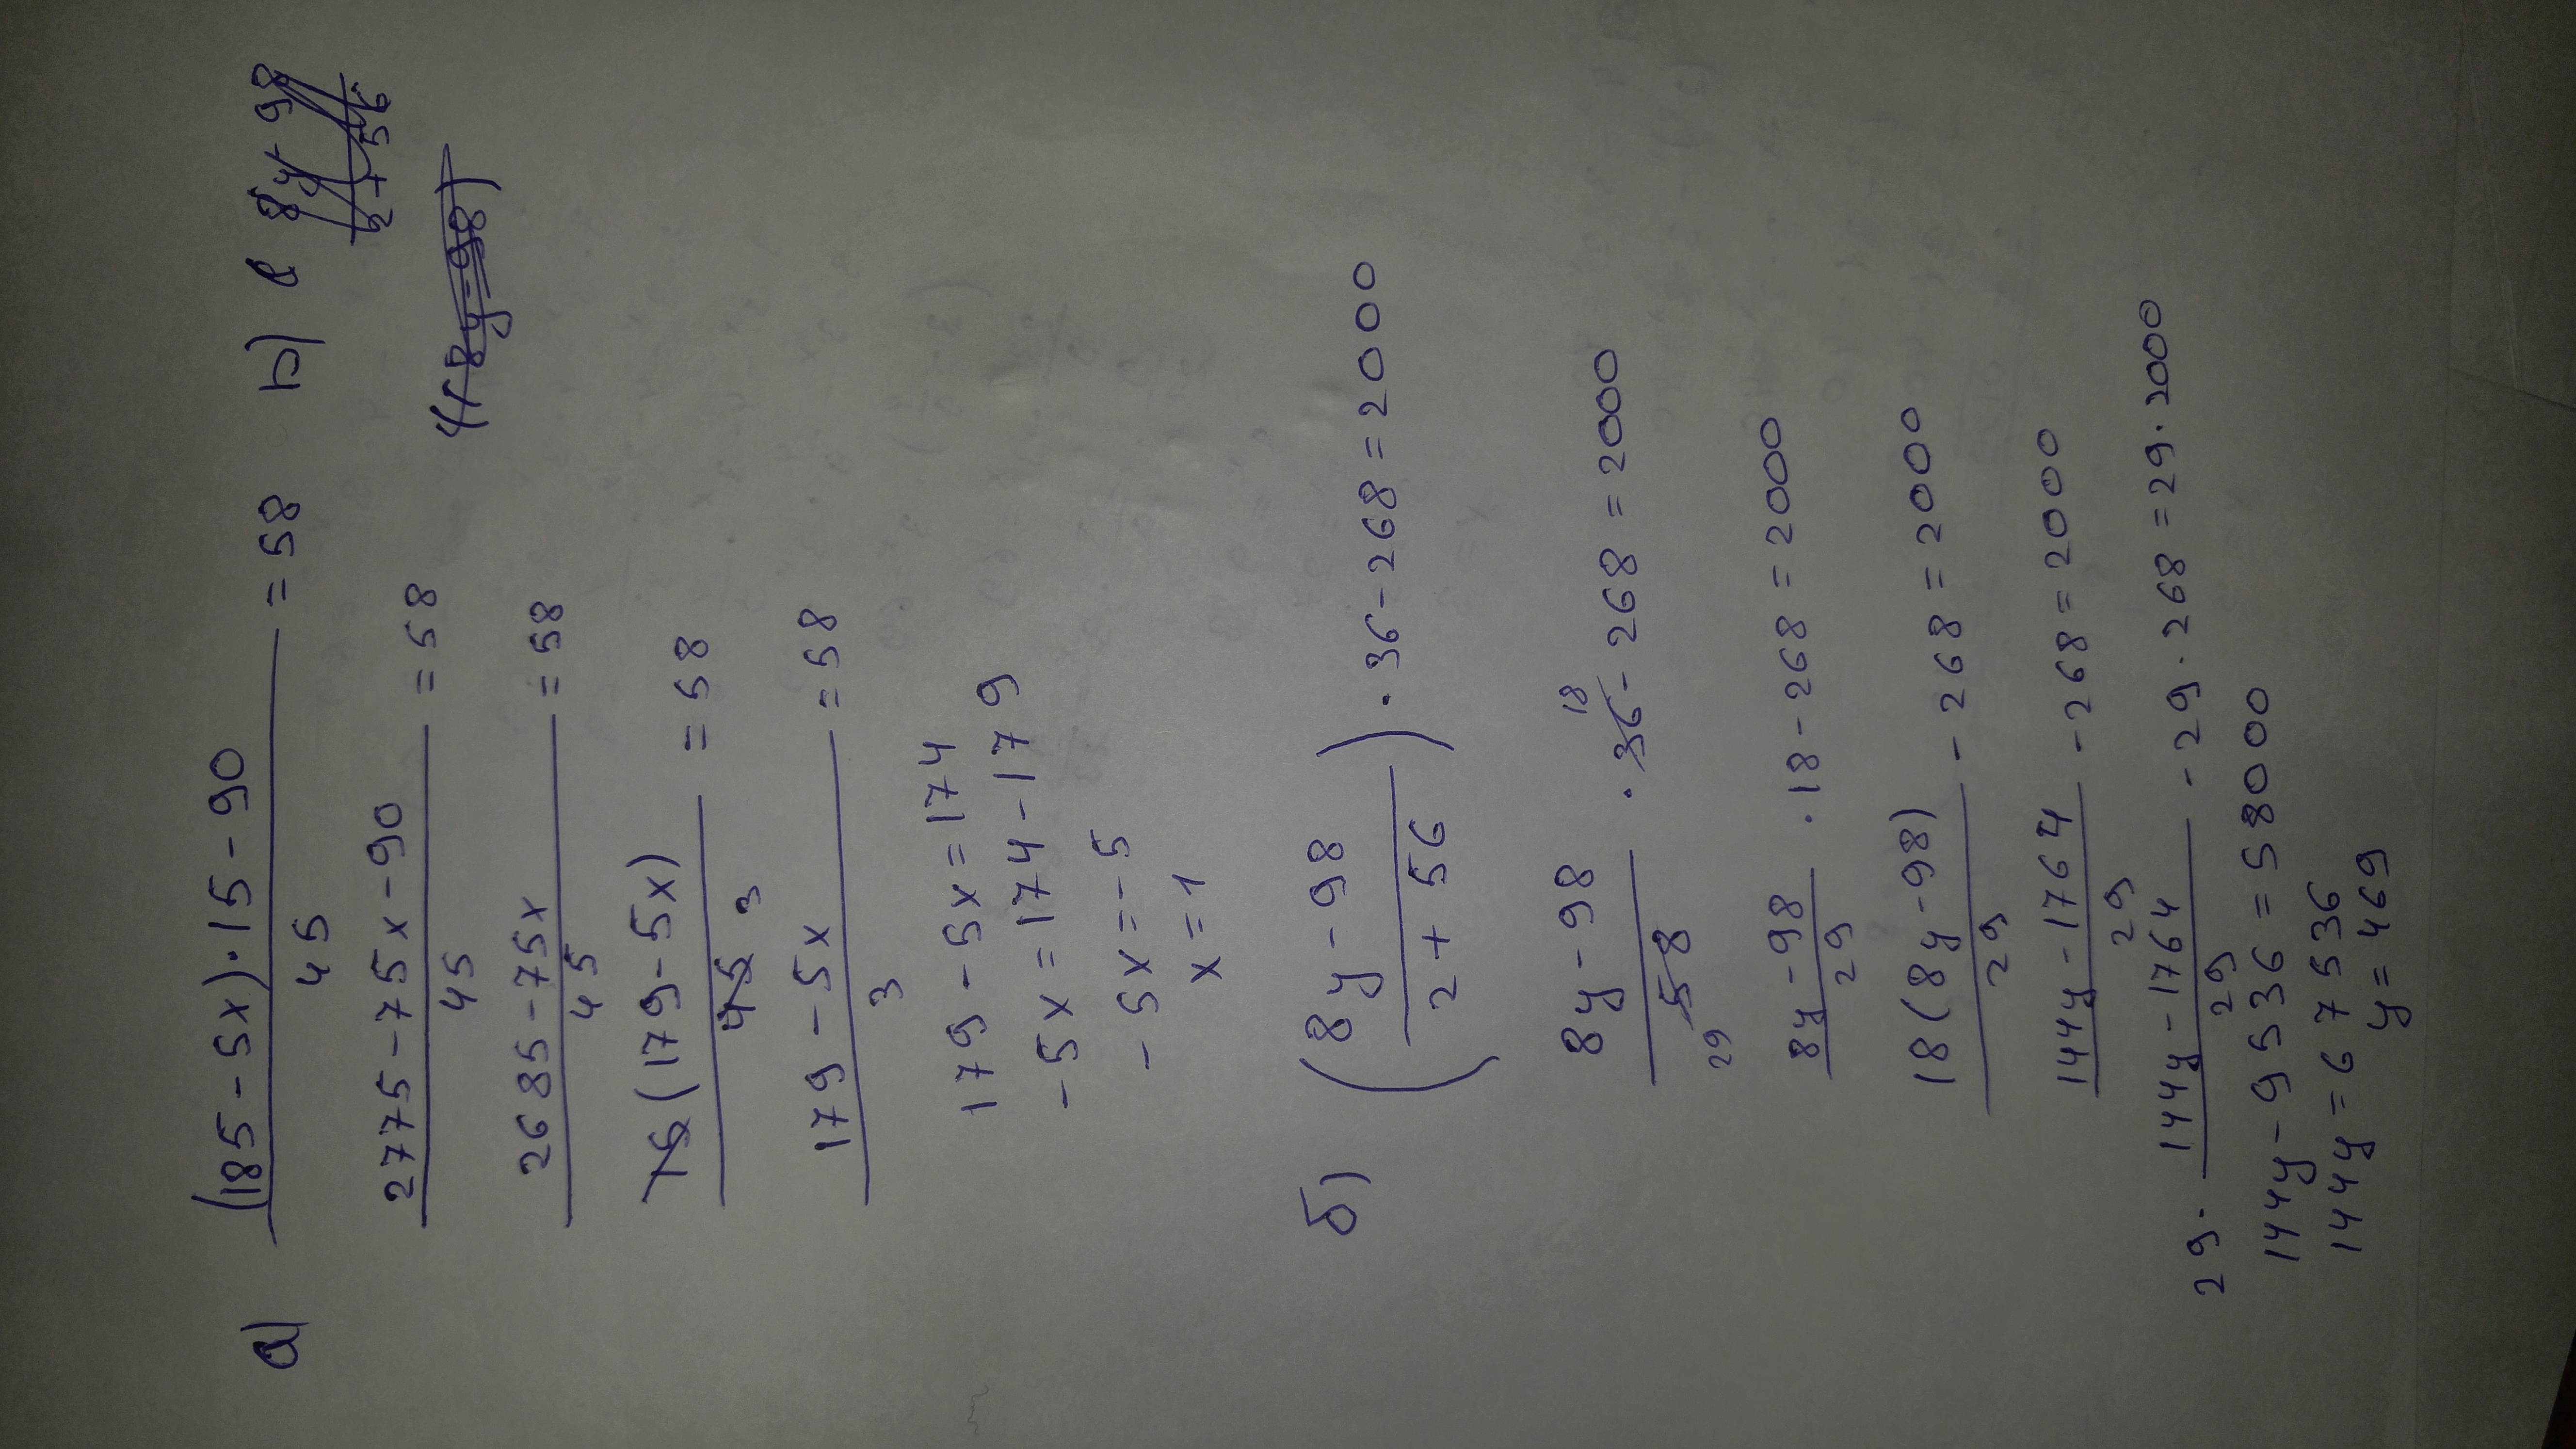 а) (185-5x)·15-90 / 45 = 58
2775-75x-90 / 45 = 58
2685-75x / 45 = 58
15(179-5x) / 45 3 = 58
179-5x / 3 = 58
179-5x=174
-5x=174-179
-5x=-5
x=1
8y-98 / 2+56
4(8y-98)
б) (8y-98 / 2+56)·36-268=2000
8y-98 / 58 29 ·36 18 -268=2000
8y-98 / 29 ·18-268=2000
18(8y-98) / 29 -268=2000
144y-1764 / 29 -268=2000
29· 144y-1764 / 29 -29·268=29·2000
144y-9536=58000
144y=67536
y=469